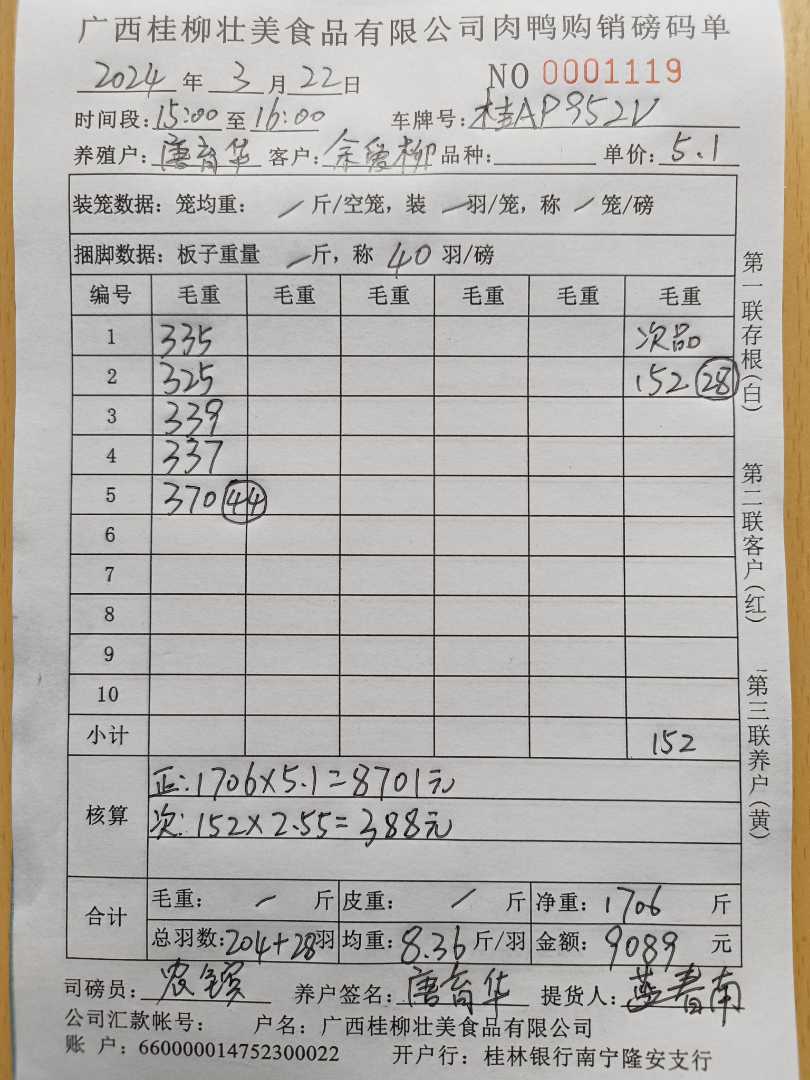 广西桂柳壮美食品有限公司肉鸭购销磅码单
2024 年 3 月 22 日 NO 0001119
时间段: 15:00 至 16:00 车牌号: 桂AP952V
养殖户: 唐育华 客户: 余爱柳 品种: 单价: 5.1
装笼数据: 笼均重: / 斤/空笼, 装 / 羽/笼, 称 / 笼/磅
捆脚数据: 板子重量 / 斤, 称 40 羽/磅
编号 毛重 毛重 毛重 毛重 毛重 毛重
1 335 次品
2 325 152 28
3 339
4 337
5 370 44
6
7
8
9
10
小计 152
核算 正: 1706×5.1=8701元
次: 152×2.55=388元
合计 毛重: / 斤 皮重: / 斤 净重: 1706 斤
总羽数: 204+28 羽 均重: 8.36 斤/羽 金额: 9089 元
司磅员: 养户签名: 唐育华 提货人: 春南
公司汇款帐号: 户名: 广西桂柳壮美食品有限公司
账 户: 660000014752300022 开户行: 桂林银行南宁隆安支行
第一联存根(白)
第二联客户(红)
第三联养户(黄)